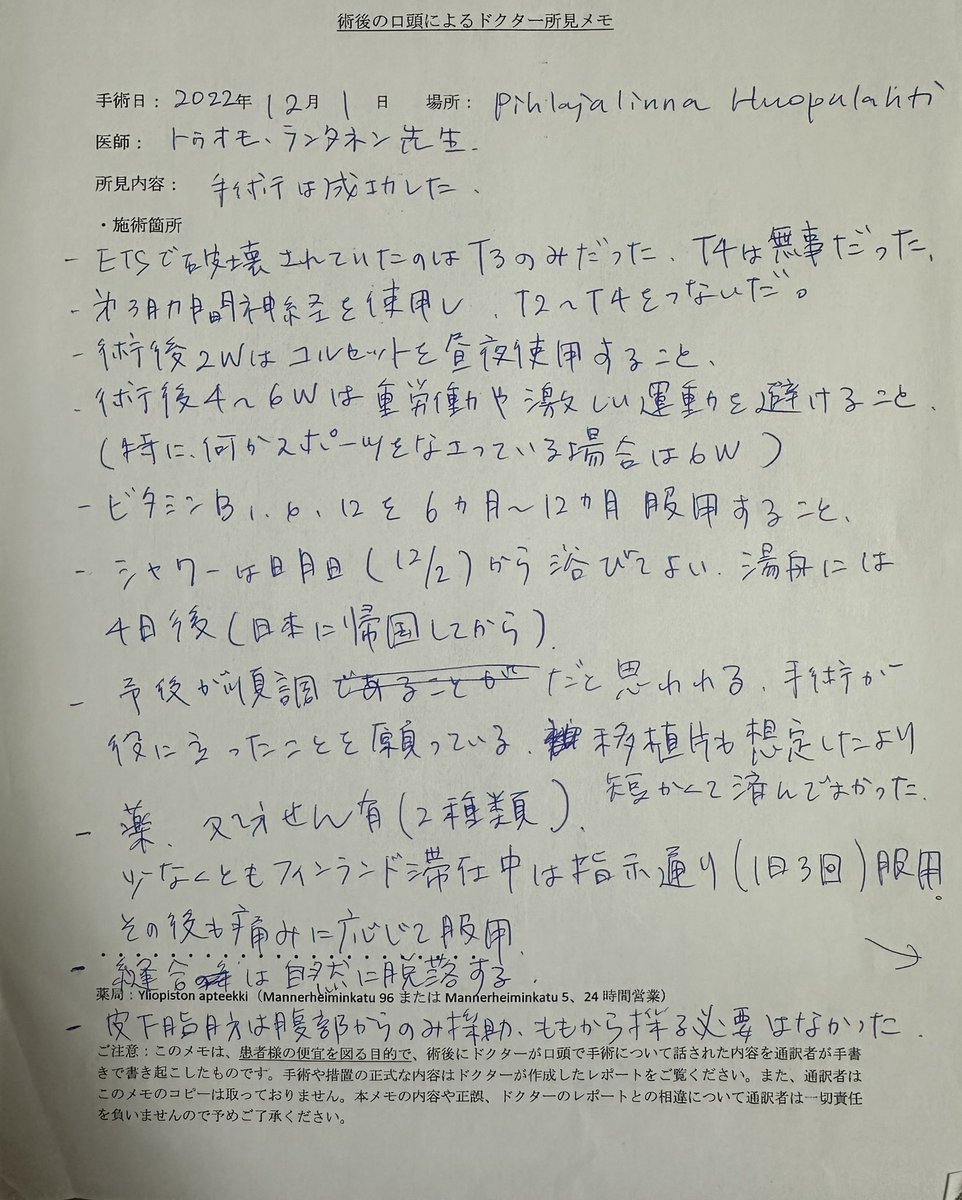 術後の口頭によるドクター所見メモ
手術日： 2022年 12月 1 日 場所： Pihlajalinna Huopulahti
医師： トゥオモ、ランタネン先生.
所見内容： 手術は成功した.
・施術箇所
- ETSで破壊されていたのはT3のみだった、T4は無事だった.
- 第3肋間神経を使用し、T2〜T4をつないだ。
- 術後2Wはコルセットを昼夜使用すること、
- 術後4〜6Wは重労働や激しい運動を避けること.
(特に、何かスポーツをなさっている場合は6W)
- ビタミンB1、6、12を6カ月〜12カ月服用すること、
- シャワーは明日(12/2)から浴びてよい、湯舟には
4日後(日本に帰国してから).
- 予後が順調であることが だと思われる、手術が
役に立ったことを願っている、移植片も想定したより
短かくて済んでよかった.
- 薬、処方せん有(2種類).
少なくともフィンランド滞在中は指示通り(1日3回)服用。
その後も痛みに応じて服用
→
- 縫合 は自然に脱落する.
薬局：Yliopiston apteekki（Mannerheiminkatu 96 または Mannerheiminkatu 5、24 時間営業）
- 皮下脂肪は腹部からのみ採取、ももから採る必要はなかった
ご注意：このメモは、患者様の便宜を図る目的で、術後にドクターが口頭で手術について話された内容を通訳者が手書
きで書き起こしたものです。手術や措置の正式な内容はドクターが作成したレポートをご覧ください。また、通訳者は
このメモのコピーは取っておりません。本メモの内容や正誤、ドクターのレポートとの相違について通訳者は一切責任
を負いませんので予めご了承ください。